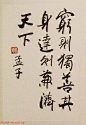 窮則獨善其
身達則兼濟
天下
孟子